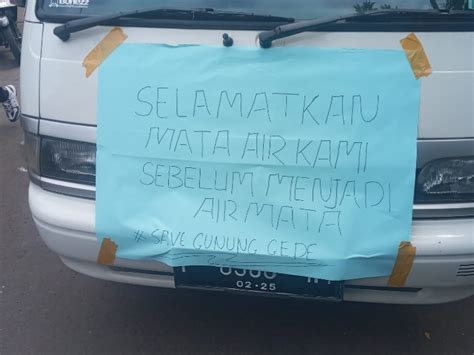 SELAMATKAN
MATA AIR KAMI
SEBELUM MENJADI
AIR MATA
# SAVE GUNUNG GEDE
02·25